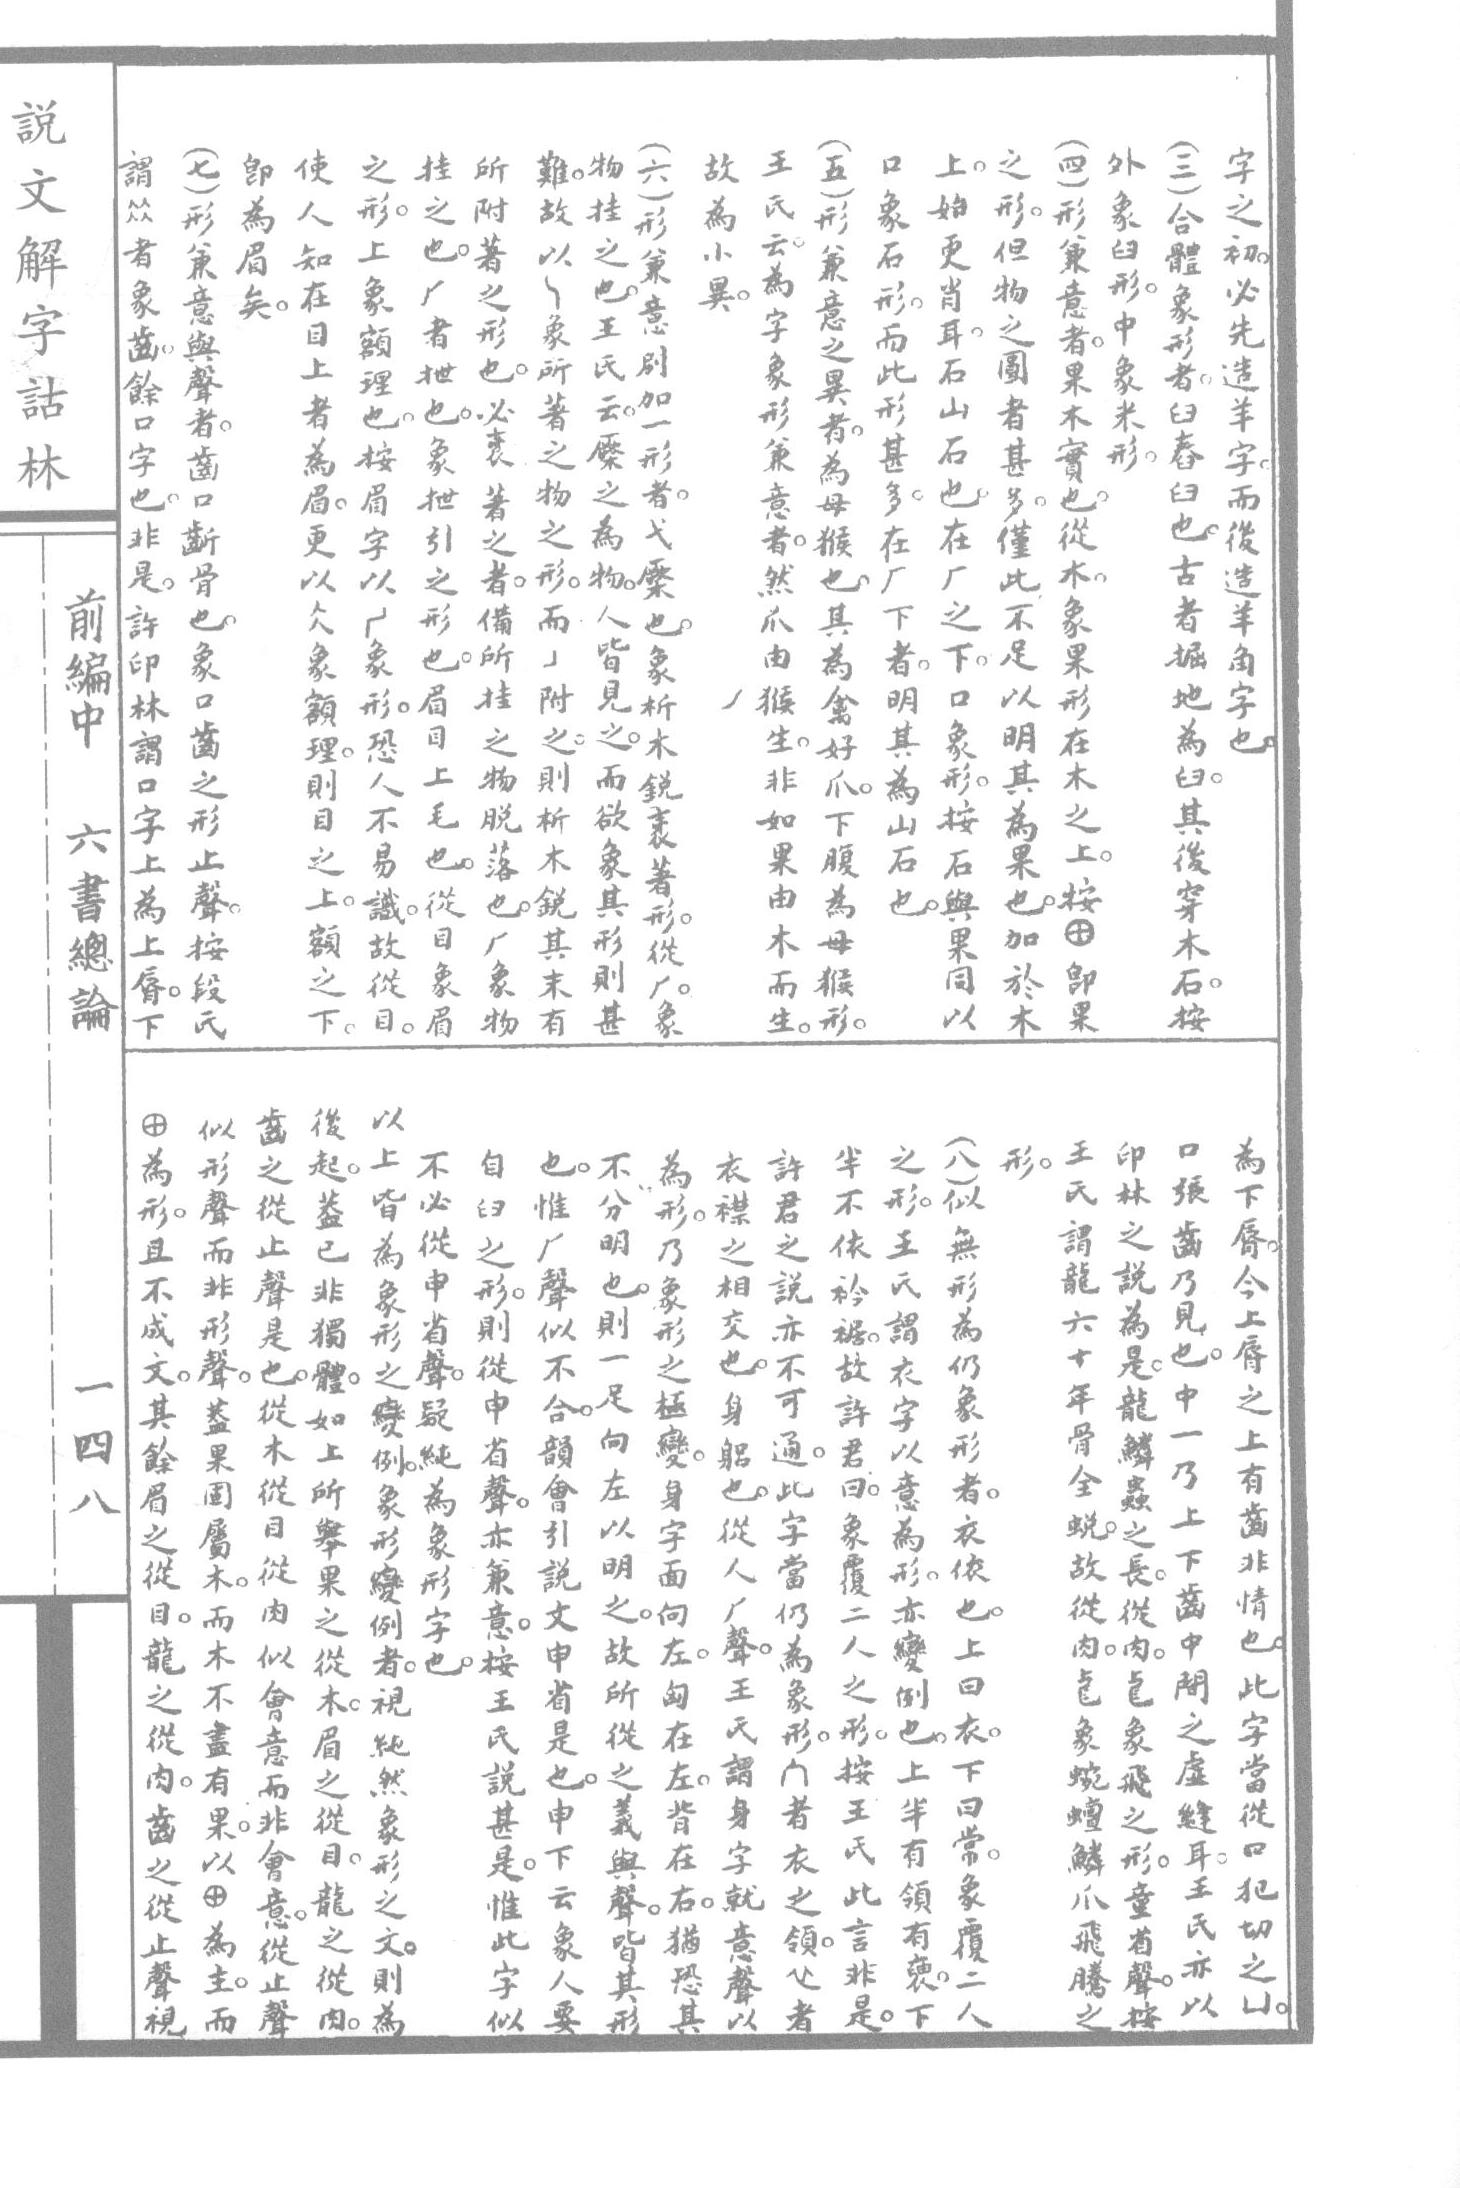 字之初。必先造羊字。而後造羊角字也。
(三)合體象形者。臼舂臼也。古者掘地為臼。其後穿木石。按
外象臼形。中象米形。
(四)形兼意者。果木實也。從木。象果形在木之上。按⊕卽果
之形。但物之圓者甚多。僅此不足以明其為果也。加於木
上。始更肖耳。石山石也。在厂之下。口象形。按石與果同以
口象石形。而此形甚多。在厂下者。明其為山石也。
(五)形兼意之異者。為母猴也。其為禽好爪。下腹為母猴形。
王氏云。為字象形兼意者。然爪由猴生。非如果由木而生。
故為小異。
(六)形兼意別加一形者。弋橜也。象析木銳衺著形。從厂。象
物挂之也。王氏云。橜之為物。人皆見之。而欲象其形則甚
難。故以㇂象所著之物之形。而亅附之。則析木銳其末有
所附著之形也。必衺著之者。備所挂之物脫落也。厂象物
挂之也。厂者抴也。象抴引之形也。眉目上毛也。從目象眉
之形。上象額理也。按眉字以𠃜象形。恐人不易識。故從目。
使人知在目上者為眉。更以仌象額理。則目之上。額之下。
卽為眉矣。
(七)形兼意與聲者。齒口齗骨也。象口齒之形止聲。按段氏
謂𠈌者象齒。餘口字也。非是。許印林謂口字上為上脣。下
為下脣。今上脣之上有齒非情也。此字當從口犯切之凵。
口張齒乃見也。中一乃上下齒中間之虛縫耳。王氏亦以
印林之說為是。龍鱗蟲之長。從肉。㔾象飛之形。童省聲。按
王氏謂龍六十年骨全蛻。故從肉。㔾象蜿蟺鱗爪飛騰之
形。
(八)似無形為仍象形者。衣依也。上曰衣。下曰常。象覆二人
之形。王氏謂衣字以意為形。亦變例也。上半有領有褎。下
半不依衿裾。故許君曰。象覆二人之形。按王氏此言非是。
許君之說亦不可通。此字當仍為象形。冂者衣之領。𠆢者
衣襟之相交也。身躳也。從人厂聲。王氏謂身字就意聲以
為形。乃象形之極變。身字面向左。匈在左。背在右。猶恐其
不分明也。則一足向左以明之。故所從之義與聲。皆其形
也。惟厂聲似不合。韻會引說文申省是也。申下云象人要
自臼之形。則從申省聲。亦兼意。按王氏說甚是。惟此字似
不必從申省聲。疑純為象形字也。
以上皆為象形之變例。象形變例者。視純然象形之文。則為
後起。蓋已非獨體。如上所舉果之從木。眉之從目。龍之從肉。
齒之從止聲是也。從木從目從肉似會意而非會意。從止聲
似形聲而非形聲。蓋果固屬木。而木不盡有果。以⊕為主。而
⊕為形。且不成文。其餘眉之從目。龍之從肉。齒之從止聲視
說文解字詁林
前編中　六書總論　一四八